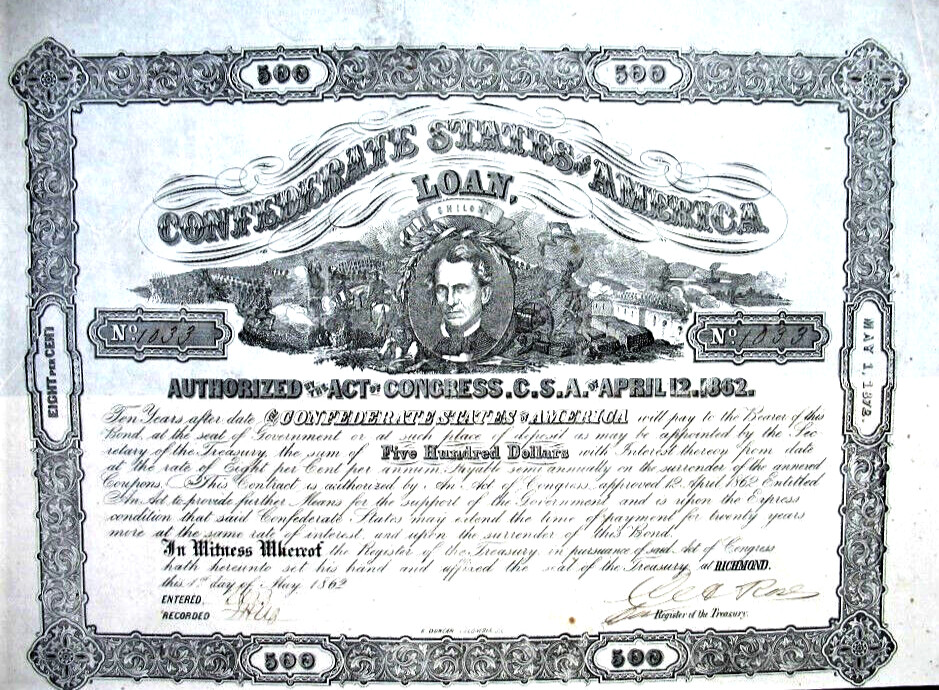 500 500
CONFEDERATE STATES OF AMERICA
LOAN,
SHILOH
No. 1033 No. 1033
EIGHT PER CENT
MAY 1, 1872.
AUTHORIZED BY THE ACT OF CONGRESS. C. S. A. OF APRIL 12. 1862.
Ten Years after date The CONFEDERATE STATES OF AMERICA will pay to the Bearer of this
Bond, at the seat of Government or at such place of deposit as may be appointed by the Sec
retary of the Treasury, the sum of Five Hundred Dollars with Interest thereon from date
at the rate of Eight per Cent per annum Payable semi annually on the surrender of the annexed
Coupons. This Contract is authorized by An Act of Congress, approved 12 April 1862 Entitled
An Act to provide further Means for the support of the Government and is upon the Express
condition that said Confederate States may extend the time of payment for twenty years
more at the same rate of interest, and upon the surrender of this Bond.
In Witness Whereof the Register of the Treasury, in pursuance of said Act of Congress
hath hereunto set his hand and affixed the seal of the Treasury, at RICHMOND.
this 1st day of May 1862
ENTERED.
RECORDED
Register of the Treasury.
DUNCAN COLUMBIA
500 500